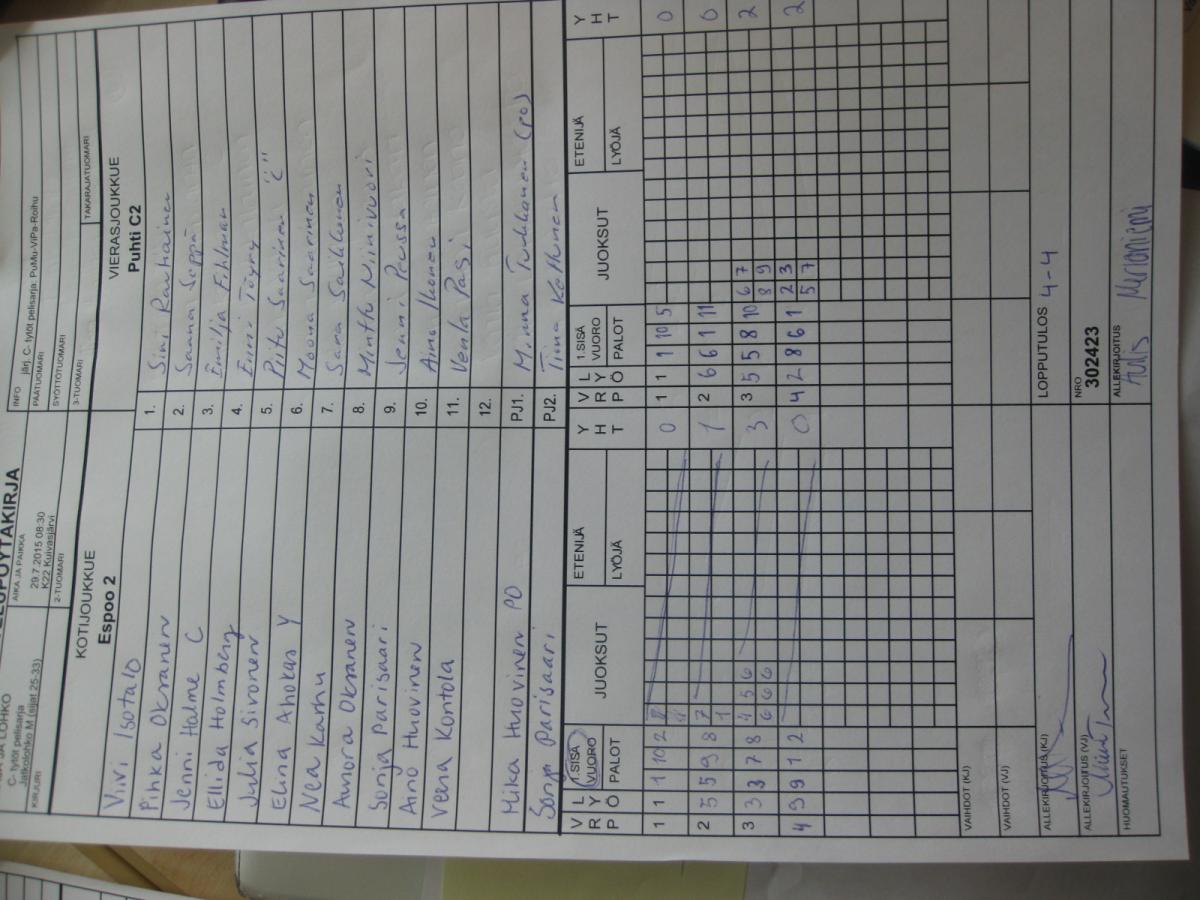 OTTELUPÖYTÄKIRJA
SARJA JA LOHKO
C- tytöt pelisarja
Jatkolohko M (sijat 25-33)
AIKA JA PAIKKA
29.7.2015 08:30
K22 Kuivasjärvi
INFO järj. C- tytöt pelisarja: PuMu-ViPa-Roihu
PÄÄTUOMARI
SYÖTTÖTUOMARI
KIRJURI
2-TUOMARI
3-TUOMARI
TAKARAJATUOMARI
KOTIJOUKKUE
Espoo 2
VIERASJOUKKUE
Puhti C2
Vivi Isotalo 1. Sini Rauhainen
Pihka Oksanen 2. Saana Seppä
Jenni Halme C 3. Emilja Ehlman
Ellida Holmberg 4. Enni Töyry
Julia Sivonen 5. Piitu Saarinen "C"
Elina Ahokas Y 6. Moona Saarinen
Nea Karhu 7. Sara Saikkonen
Aurora Oksanen 8. Minttu Niinivuori
Sonja Parisaari 9. Jenni Peussa
Aino Huovinen 10. Aino Ikonen
Veera Kontola 11. Venla Pasi
12.
Mika Huovinen PO PJ1. Minna Turkkanen (po)
Sonja Parisaari PJ2. Tiina Ketkunen
V R P L Y Ö 1.SISÄ VUORO PALOT JUOKSUT ETENIJÄ LYÖJÄ Y H T V R P L Y Ö 1.SISÄ VUORO PALOT JUOKSUT ETENIJÄ LYÖJÄ Y H T
1 1 1 10 2 0 1 1 1 10 5 0
2 5 5 9 8 7 1 2 6 6 1 11 0
1
3 3 3 7 8 4 5 6 3 3 5 5 8 10 6 7 2
6 6 6 8 9
4 9 9 1 2 0 4 2 8 6 1 2 3 2
5 7
VAIHDOT (KJ)
VAIHDOT (VJ)
ALLEKIRJOITUS (KJ)
LOPPUTULOS 4-4
ALLEKIRJOITUS (VJ)
NRO
302423
HUOMAUTUKSET
ALLEKIRJOITUS